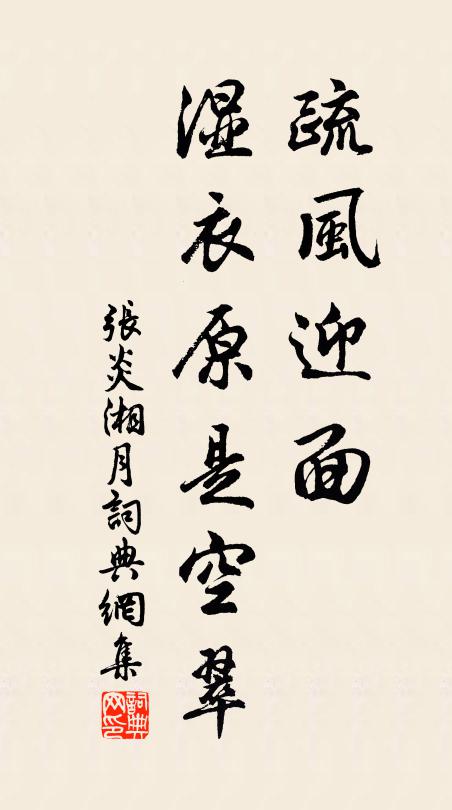 疏風迎面
濕衣原是空翠
張炎湘月詞典網集
詞典網印